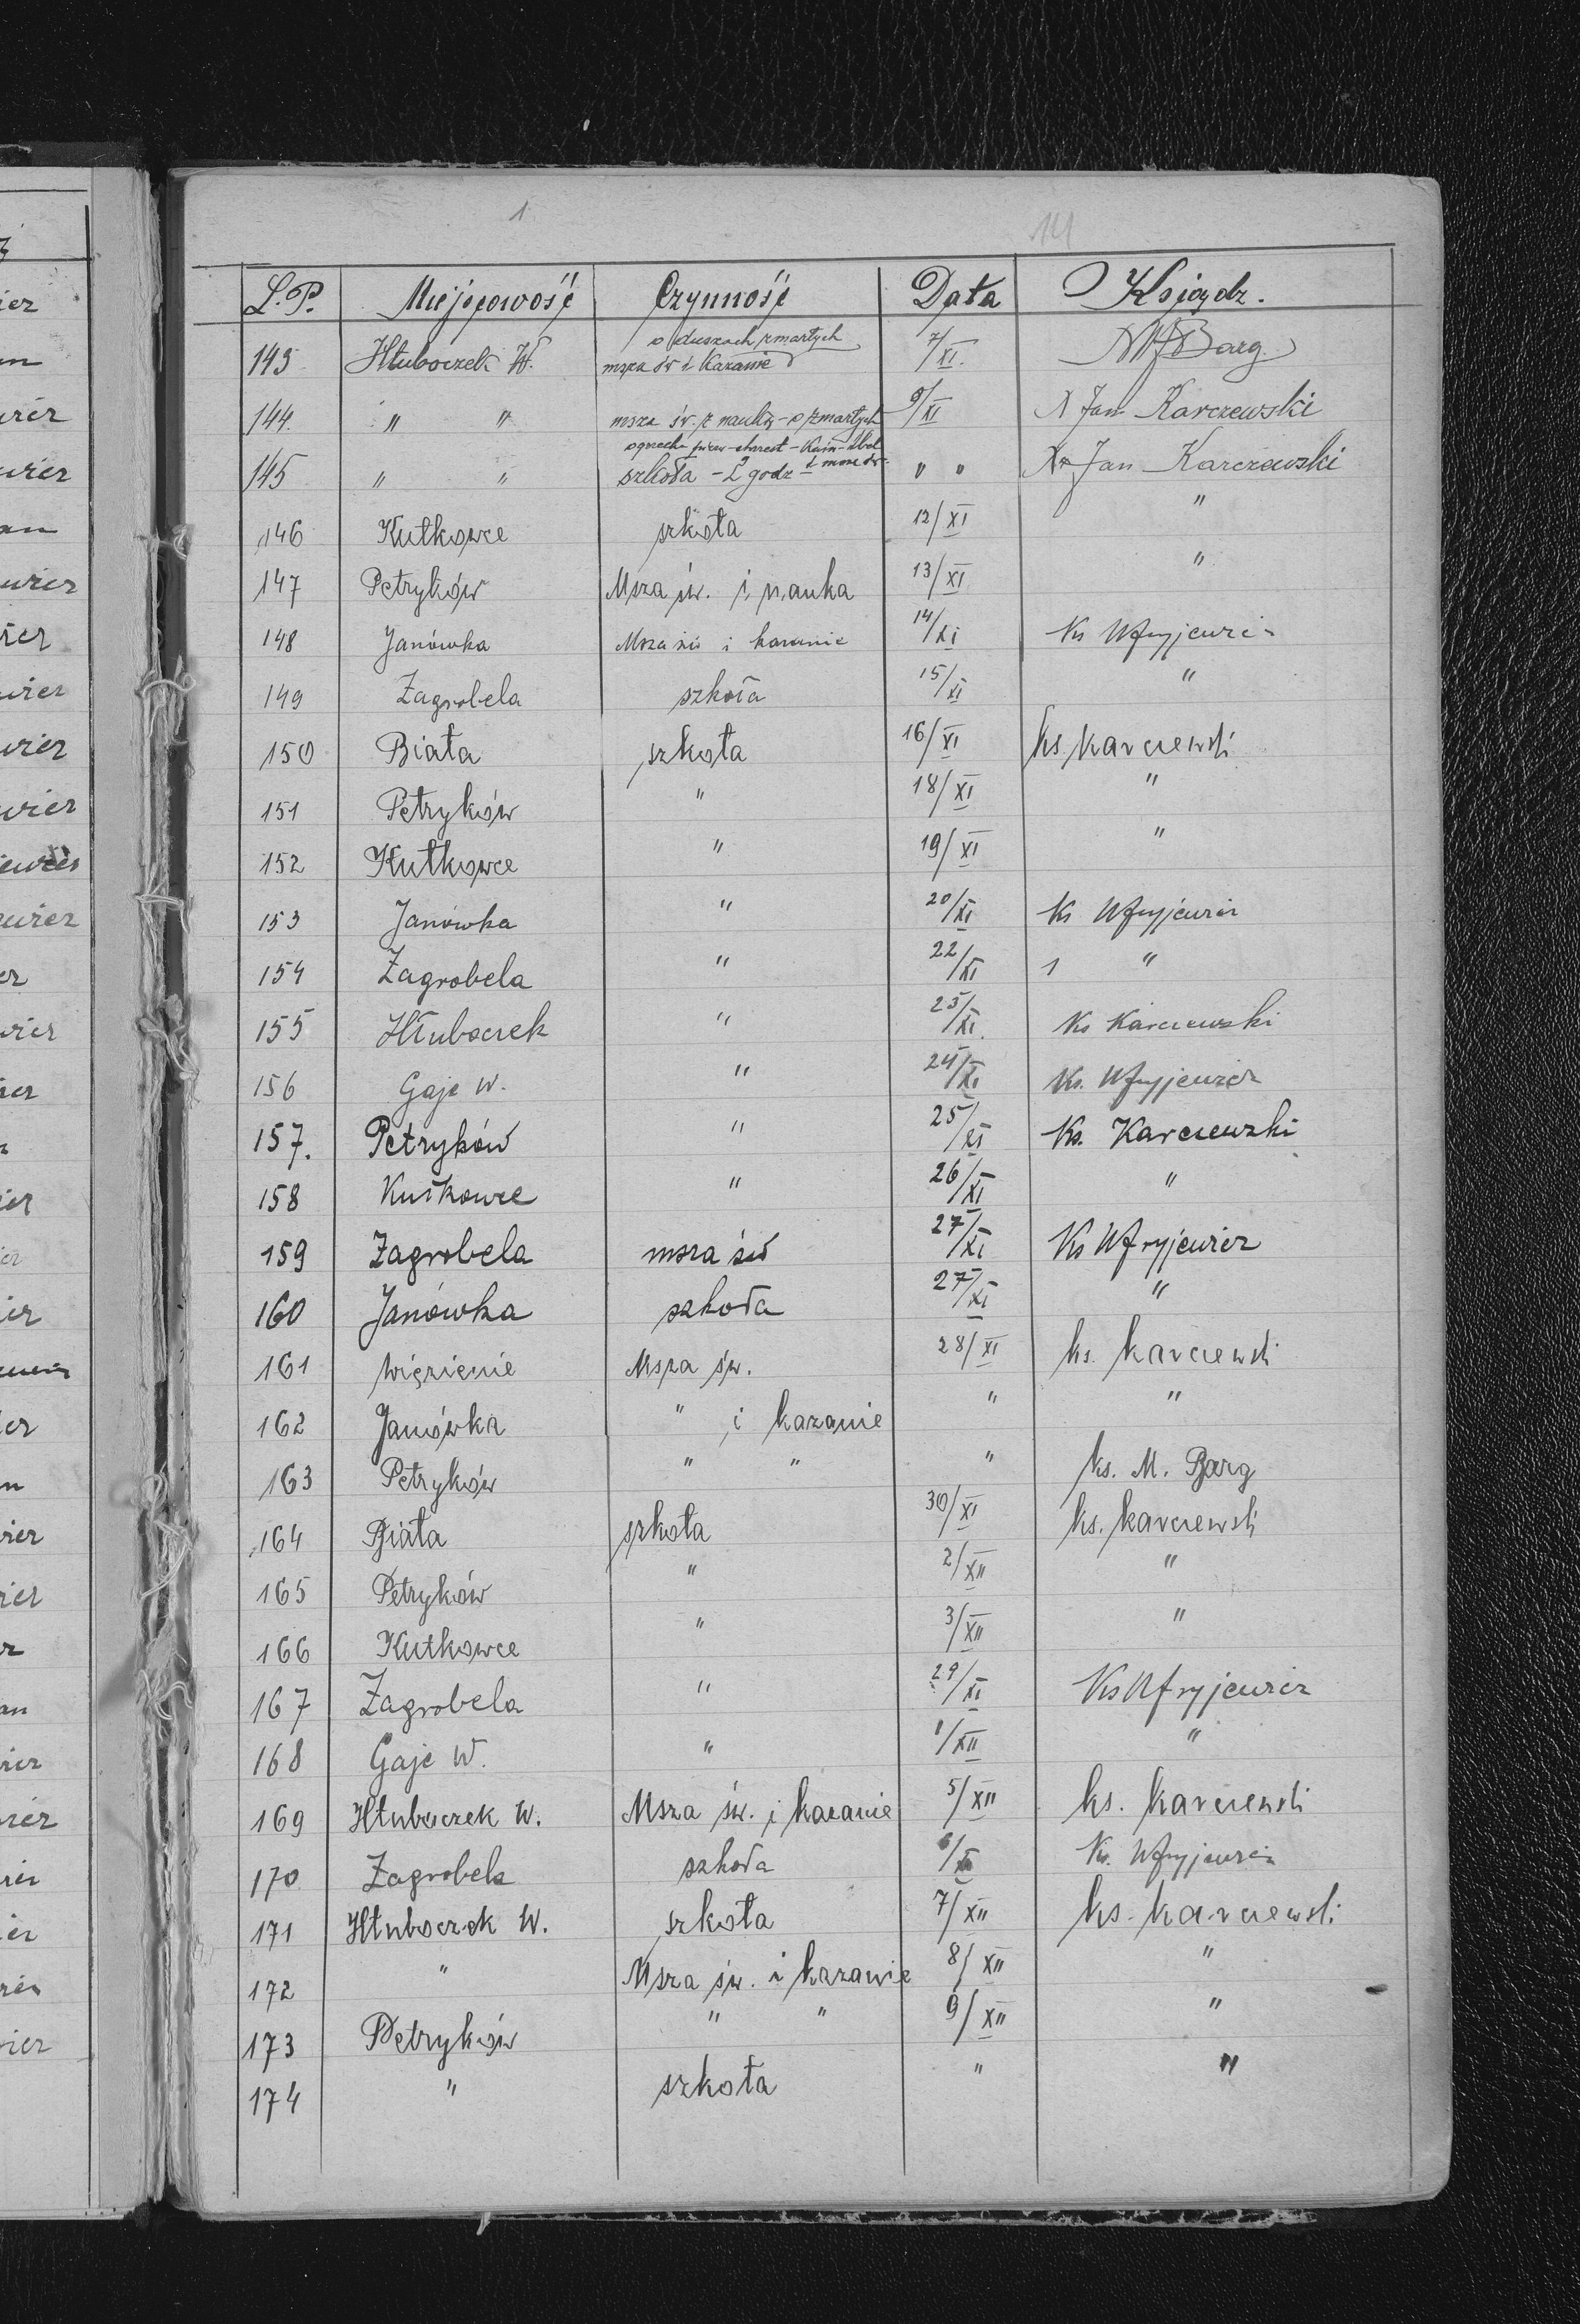 1 14
L.P. Miejscowość Czynność Data Ksiądz.
o duszach zmarłych
143 Hłuboczek W. msza św i Kazanie 7/XI. Barg
144. " " msza św. z nauką - o zmarłych 9/XI X Jan Karczewski
145 " " szkoła - 2 godz " " X Jan Karczewski
146 Kutkowce szkoła 12/XI "
147 Petryków Msza św. i nauka 13/XI "
148 Janówka Msza św i kazanie 14/XI Ks Ufryjewicz
149 Zagrobela szkoła 15/XI "
150 Biała szkoła 16/XI ks karczewski
151 Petryków " 18/XI "
152 Kutkowce " 19/XI "
153 Janówka " 20/XI Ks Ufryjewicz
154 Zagrobela " 22/XI 1 "
155 Hłuboczek " 23/XI. Ks Karczewski
156 Gaje W. " 24/XI Ks. Ufryjewicz
157. Petryków " 25/XI Ks. Karczewski
158 Kutkowce " 26/XI "
159 Zagrobela msza św 27/XI Ks Ufryjewicz
160 Janówka szkoła 27/XI "
161 więzienie Msza św. 28/XI ks. karczewski
162 Janówka " i kazanie " "
163 Petryków " " " ks. M. Barg
164 Biała szkoła 30/XI ks. karczewski
165 Petryków " 2/XII "
166 Kutkowce " 3/XII "
167 Zagrobela " 29/XI Ks Ufryjewicz
168 Gaje W. " 1/XII "
169 Hłuboczek W. Msza św. i kazanie 5/XII ks. karczewski
170 Zagrobela szkoła 6/XII Ks. Ufryjewicz
171 Hłuboczek W. szkoła 7/XII ks. karczewski
172 " Msza św. i kazanie 8/XII "
173 Petryków " " 9/XII "
174 " szkoła " "